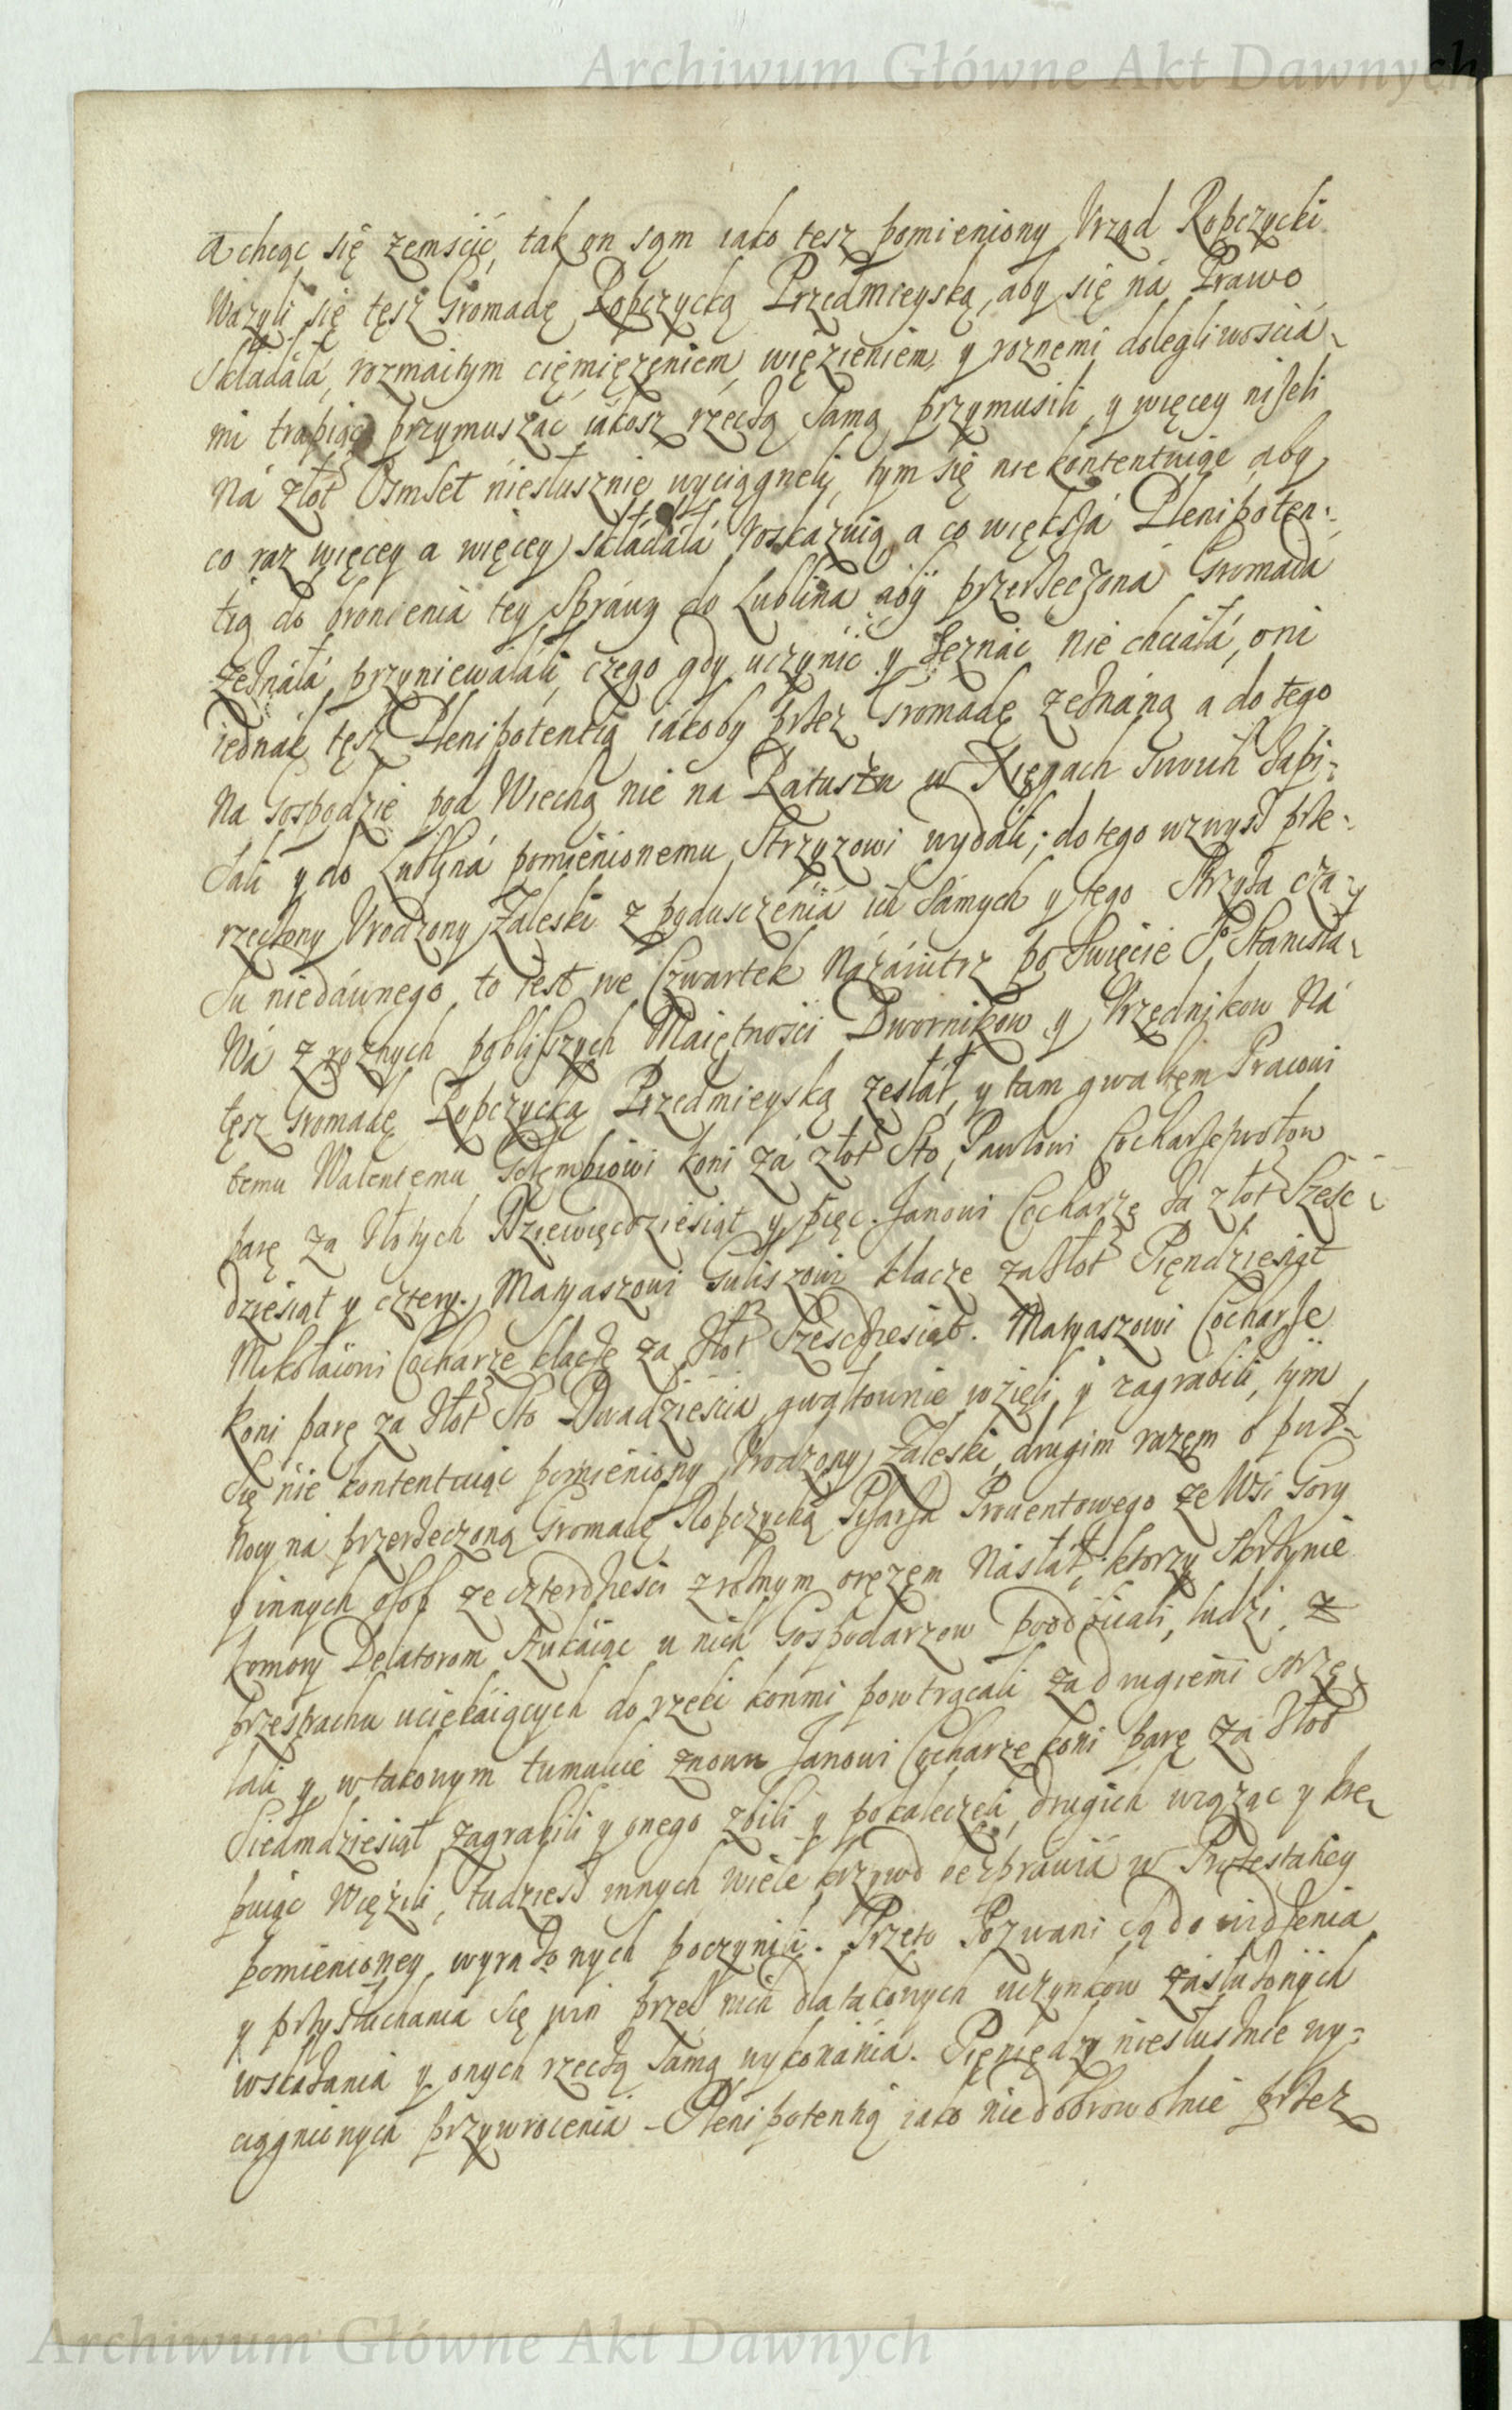 Archiwum Główne Akt Dawnych
a chcąc się zemscić, tak on sąm iako tesz pomieniony Vrząd Ropczycki
Wazyli się tęsz Gromadę Ropczycką Przedmieyską, aby się ná Prawo
składáłá, rozmaitym cięmięzęniem, więzieniem, y roznemi dolegliwoscia
mi trapiąc przymuszać iákosz rzeczą samą przymusili, y więcey niżeli
Ná złot Osmset niesłusznie wyciągneli, tym się nie kontentuiąc, aby
co raz więcey a więcey składáłá roskazuią, a co większá Plenipoten:
tią do bronienia tey Spráwy do Lubliná aby przerzeczoná Gromada
zeznáłá przyniewaláli, czego gdy uczynić y zeznać nie chciáłá, oni
iednák tęsz Plenipotentią iákoby przez Gromadę zeznáną a do tego
Na Gospodzie pod Wiechą nie na Ratuszu w Xięgach swoich zapi:
sali y do Lubliná pomienionemu Strzyzowi wydáli; do tego wzwysz prze:
rzeczony Vrodzony Zaleski z poduszczenia ich sámych y tego Strzyża cza
su niedáwnego, to iest we Czwartek Názáiutrz po Swięcie S° Stanisłá
Wá z roznych pobliszych Maiętnosci Dwornikow y Vrzędnikow Ná
tęsz Gromadę Ropczycką Przedmieyską zesłáł, y tam gwałtem Pracowi
temu Walentemu Gołęmbiowi koni zá złot Sto, Pawłowi Cocharze wołow
parę za złotych Dziewięcdziesiąt y pięc. Janowi Cocharzę zá złot Szesc
dziesiąt y cztery. Matyaszowi Guliszowi klacze za złot Pięndziesiąt
Mikołáiowi Cocharze klaczę za złot Szescdziesiąt. Matyaszowi Cocharze
koni parę za złot Sto Dwadziescia gwałtownie wzięli y zagrabili, tym
się nie kontentuiąc pomieniony Vrodzony Zaleski, drugim razęm o puł
nocy ná przerzeczoną Gromadę Ropczycką Pisarza Prouentowego ze Wsi Gory
y innych osob ze czterdziesci z roznym oręzęm Násłáł, ktorzy skrzynie
komory Delatorom szukáiąc u nich Gospodarzow poodbiiali, ludzi z
przestrachu uciekáiących do rzeki konmi powtrącali za drugiemi strze
lali y w takowym tumulcie znowu Janowi Cocharze koni parę za złot
Siedmdziesiąt zagrabili y onego zbili y pokaleczeli, drugich wiążąc y krę
puiąc Więzili, tudziesz innych wiele krzywd bezpráwia w Protestácyey
pomienioney wyrazonych poczynili. Przeto Pozwani są do widzenia
y przysłuchania się win przez nich dla takowych uczynkow zasłuzonych
wskazania y onych rzeczą sámą wykonánia. Pięniędzy niesłusznie wy:
ciągnionych przywrocenia – Plenipotentią iako niedobrowolnie przez
Archiwum Główne Akt Dawnych